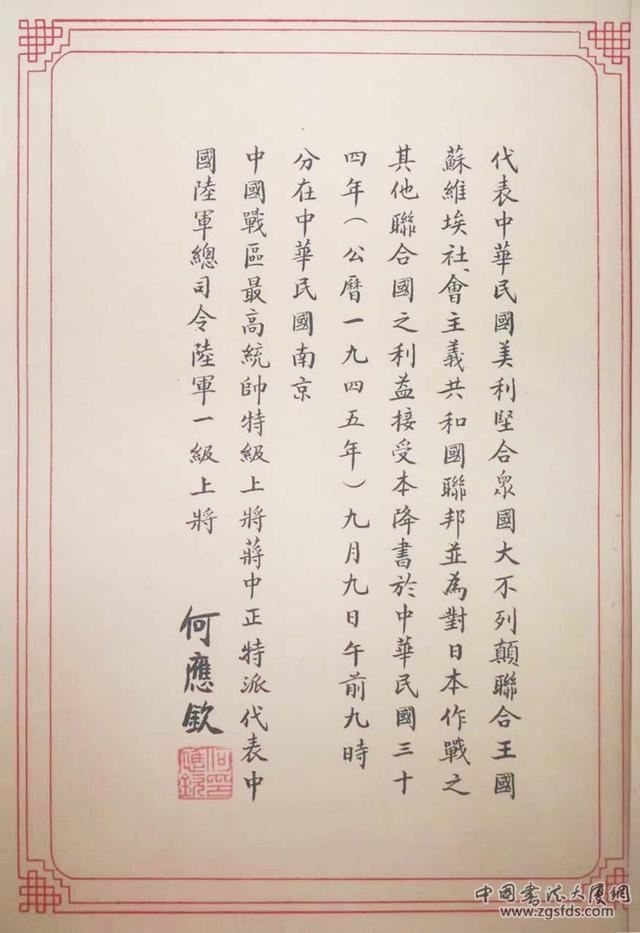 代表中華民國美利堅合衆國大不列顛聯合王國
蘇維埃社會主義共和國聯邦並為對日本作戰之
其他聯合國之利益接受本降書於中華民國三十
四年（公曆一九四五年）九月九日午前九時
分在中華民國南京
中國戰區最高統帥特級上將蔣中正特派代表中
國陸軍總司令陸軍一級上將
何應欽
何應欽印
中国书法大厦网
www.zgsfds.com